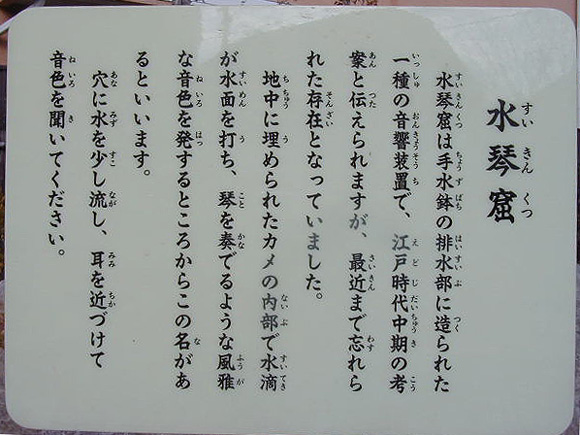 水琴窟
水琴窟は手水鉢の排水部に造られた
一種の音響装置で、江戸時代中期の考
案と伝えられますが、最近まで忘れら
れた存在となっていました。
地中に埋められたカメの内部で水滴
が水面を打ち、琴を奏でるような風雅
な音色を発するところからこの名があ
るといいます。
穴に水を少し流し、耳を近づけて
音色を聞いてください。